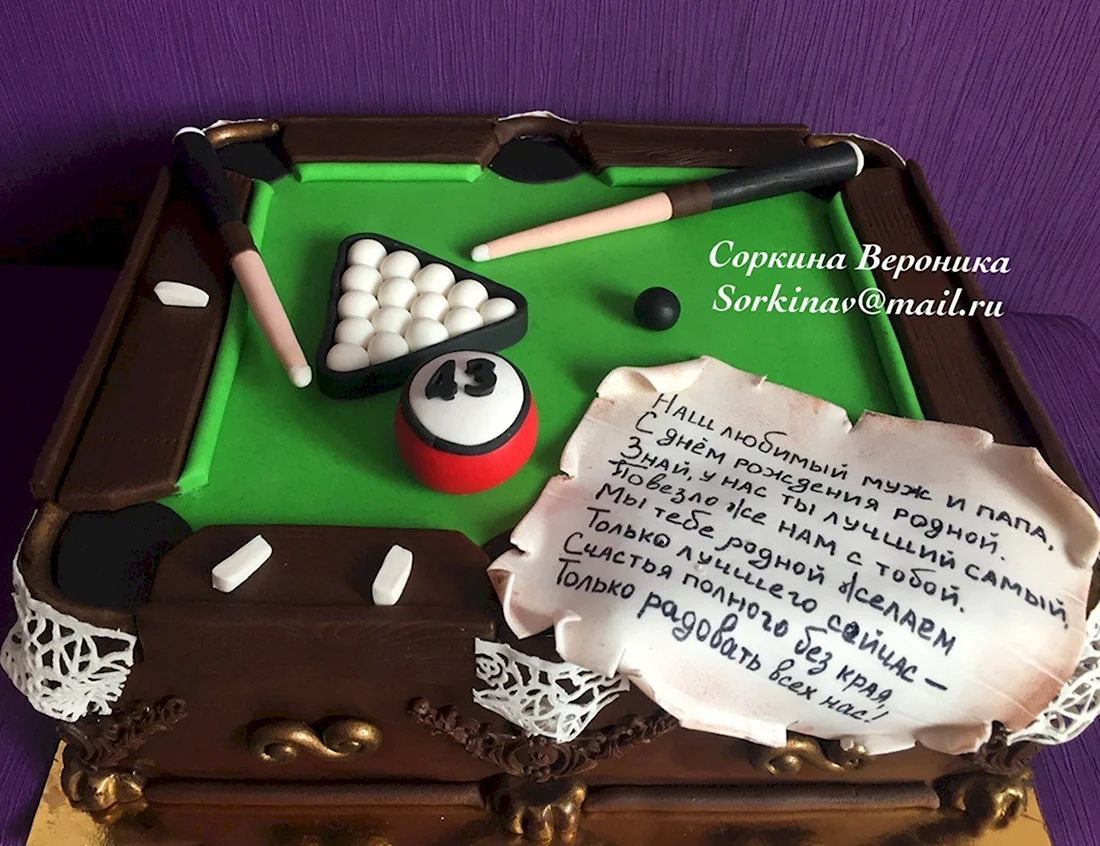 Соркина Вероника
Sorkinav@mail.ru
43
Наш любимый муж и папа,
С днём рождения родной.
Знай, у нас ты лучший самый,
Повезло же нам с тобой.
Мы тебе родной желаем
Только лучшего сейчас –
Счастья полного без края,
Только радовать всех нас!